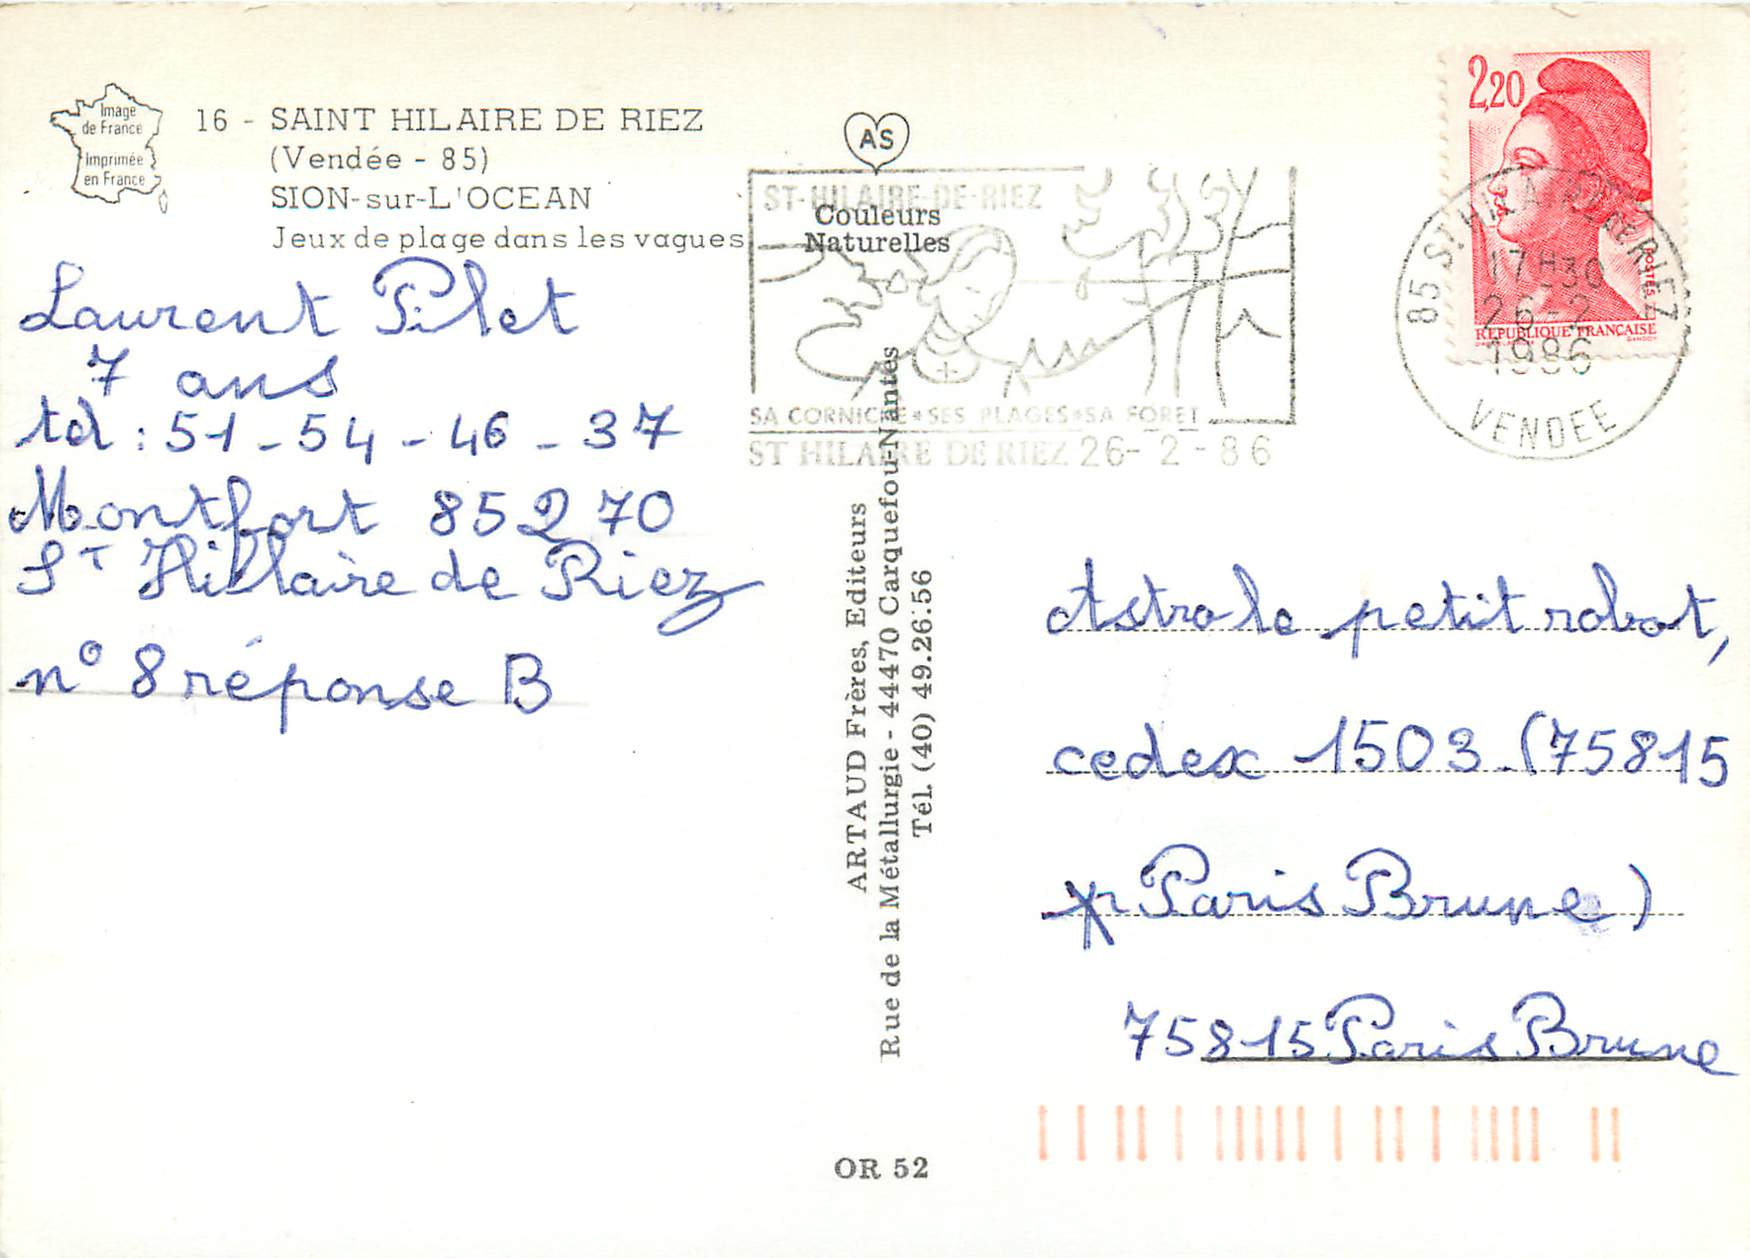 Image
de France
Imprimée
en France
16 - SAINT HILAIRE DE RIEZ
(Vendée - 85)
SION-sur-L'OCEAN
Jeux de plage dans les vagues
Laurent Pilet
7 ans
tél : 51-54-46-37
Montfort 85270
S^T Hillaire de Riez
n° 8 réponse B
AS
Couleurs
Naturelles
ST-HILAIRE-DE-RIEZ
SA CORNICHE*SES PLAGES*SA FORET
ST HILAIRE DE RIEZ 26-2-86
ARTAUD Frères, Editeurs
Rue de la Métallurgie - 44470 Carquefou-Nantes
Tél. (40) 49.26.56
OR 52
2,20
POSTES
REPUBLIQUE FRANÇAISE
GANDON
85 ST HILAIRE DE RIEZ
17H30
26-2
1986
VENDEE
Astro le petit robot,
cedex 1503 (75815
Paris Brune)
75815 Paris Brune